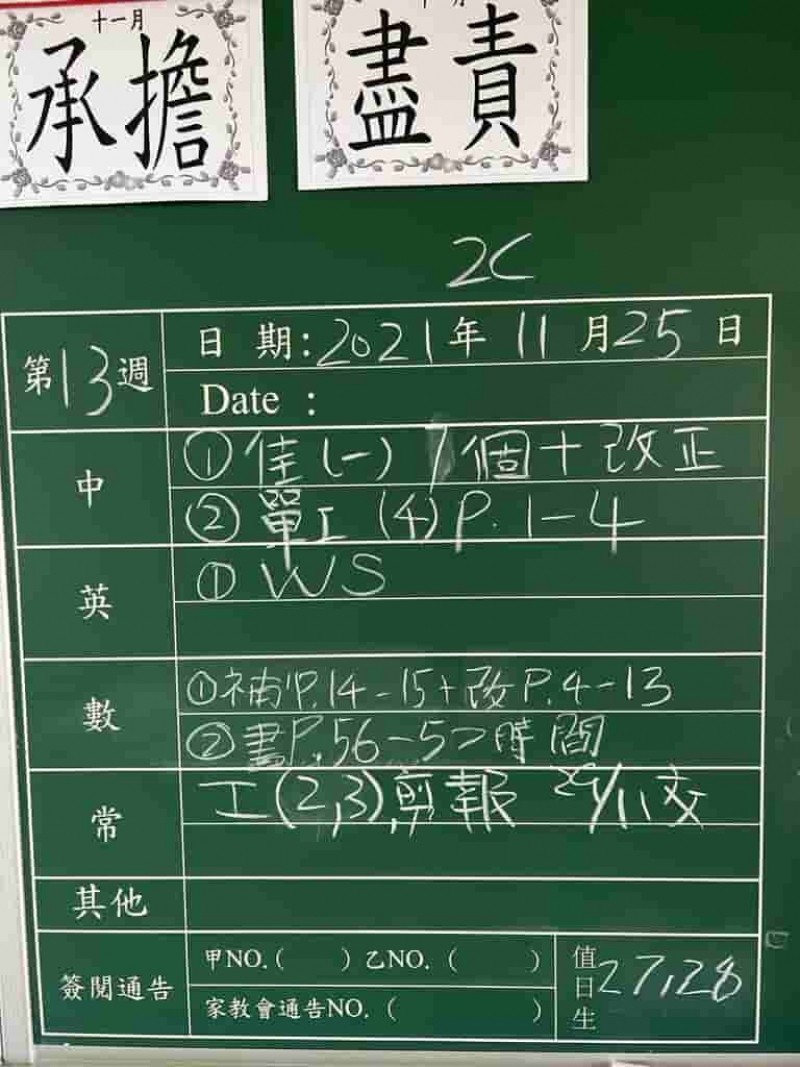 十一月
承擔
十一月
盡責
2C
第13週
日期：2021年11月25日
Date：
中
①佳(一)7個+改正
②單工(4)P.1-4
英
①WS
數
①補P.14-15+改P.4-13
②書P.56-57時間
常
工(2,3),剪報 29/11交
其他
簽閱通告
甲NO.( )乙NO.( )
家教會通告NO.( )
值日生
27,28